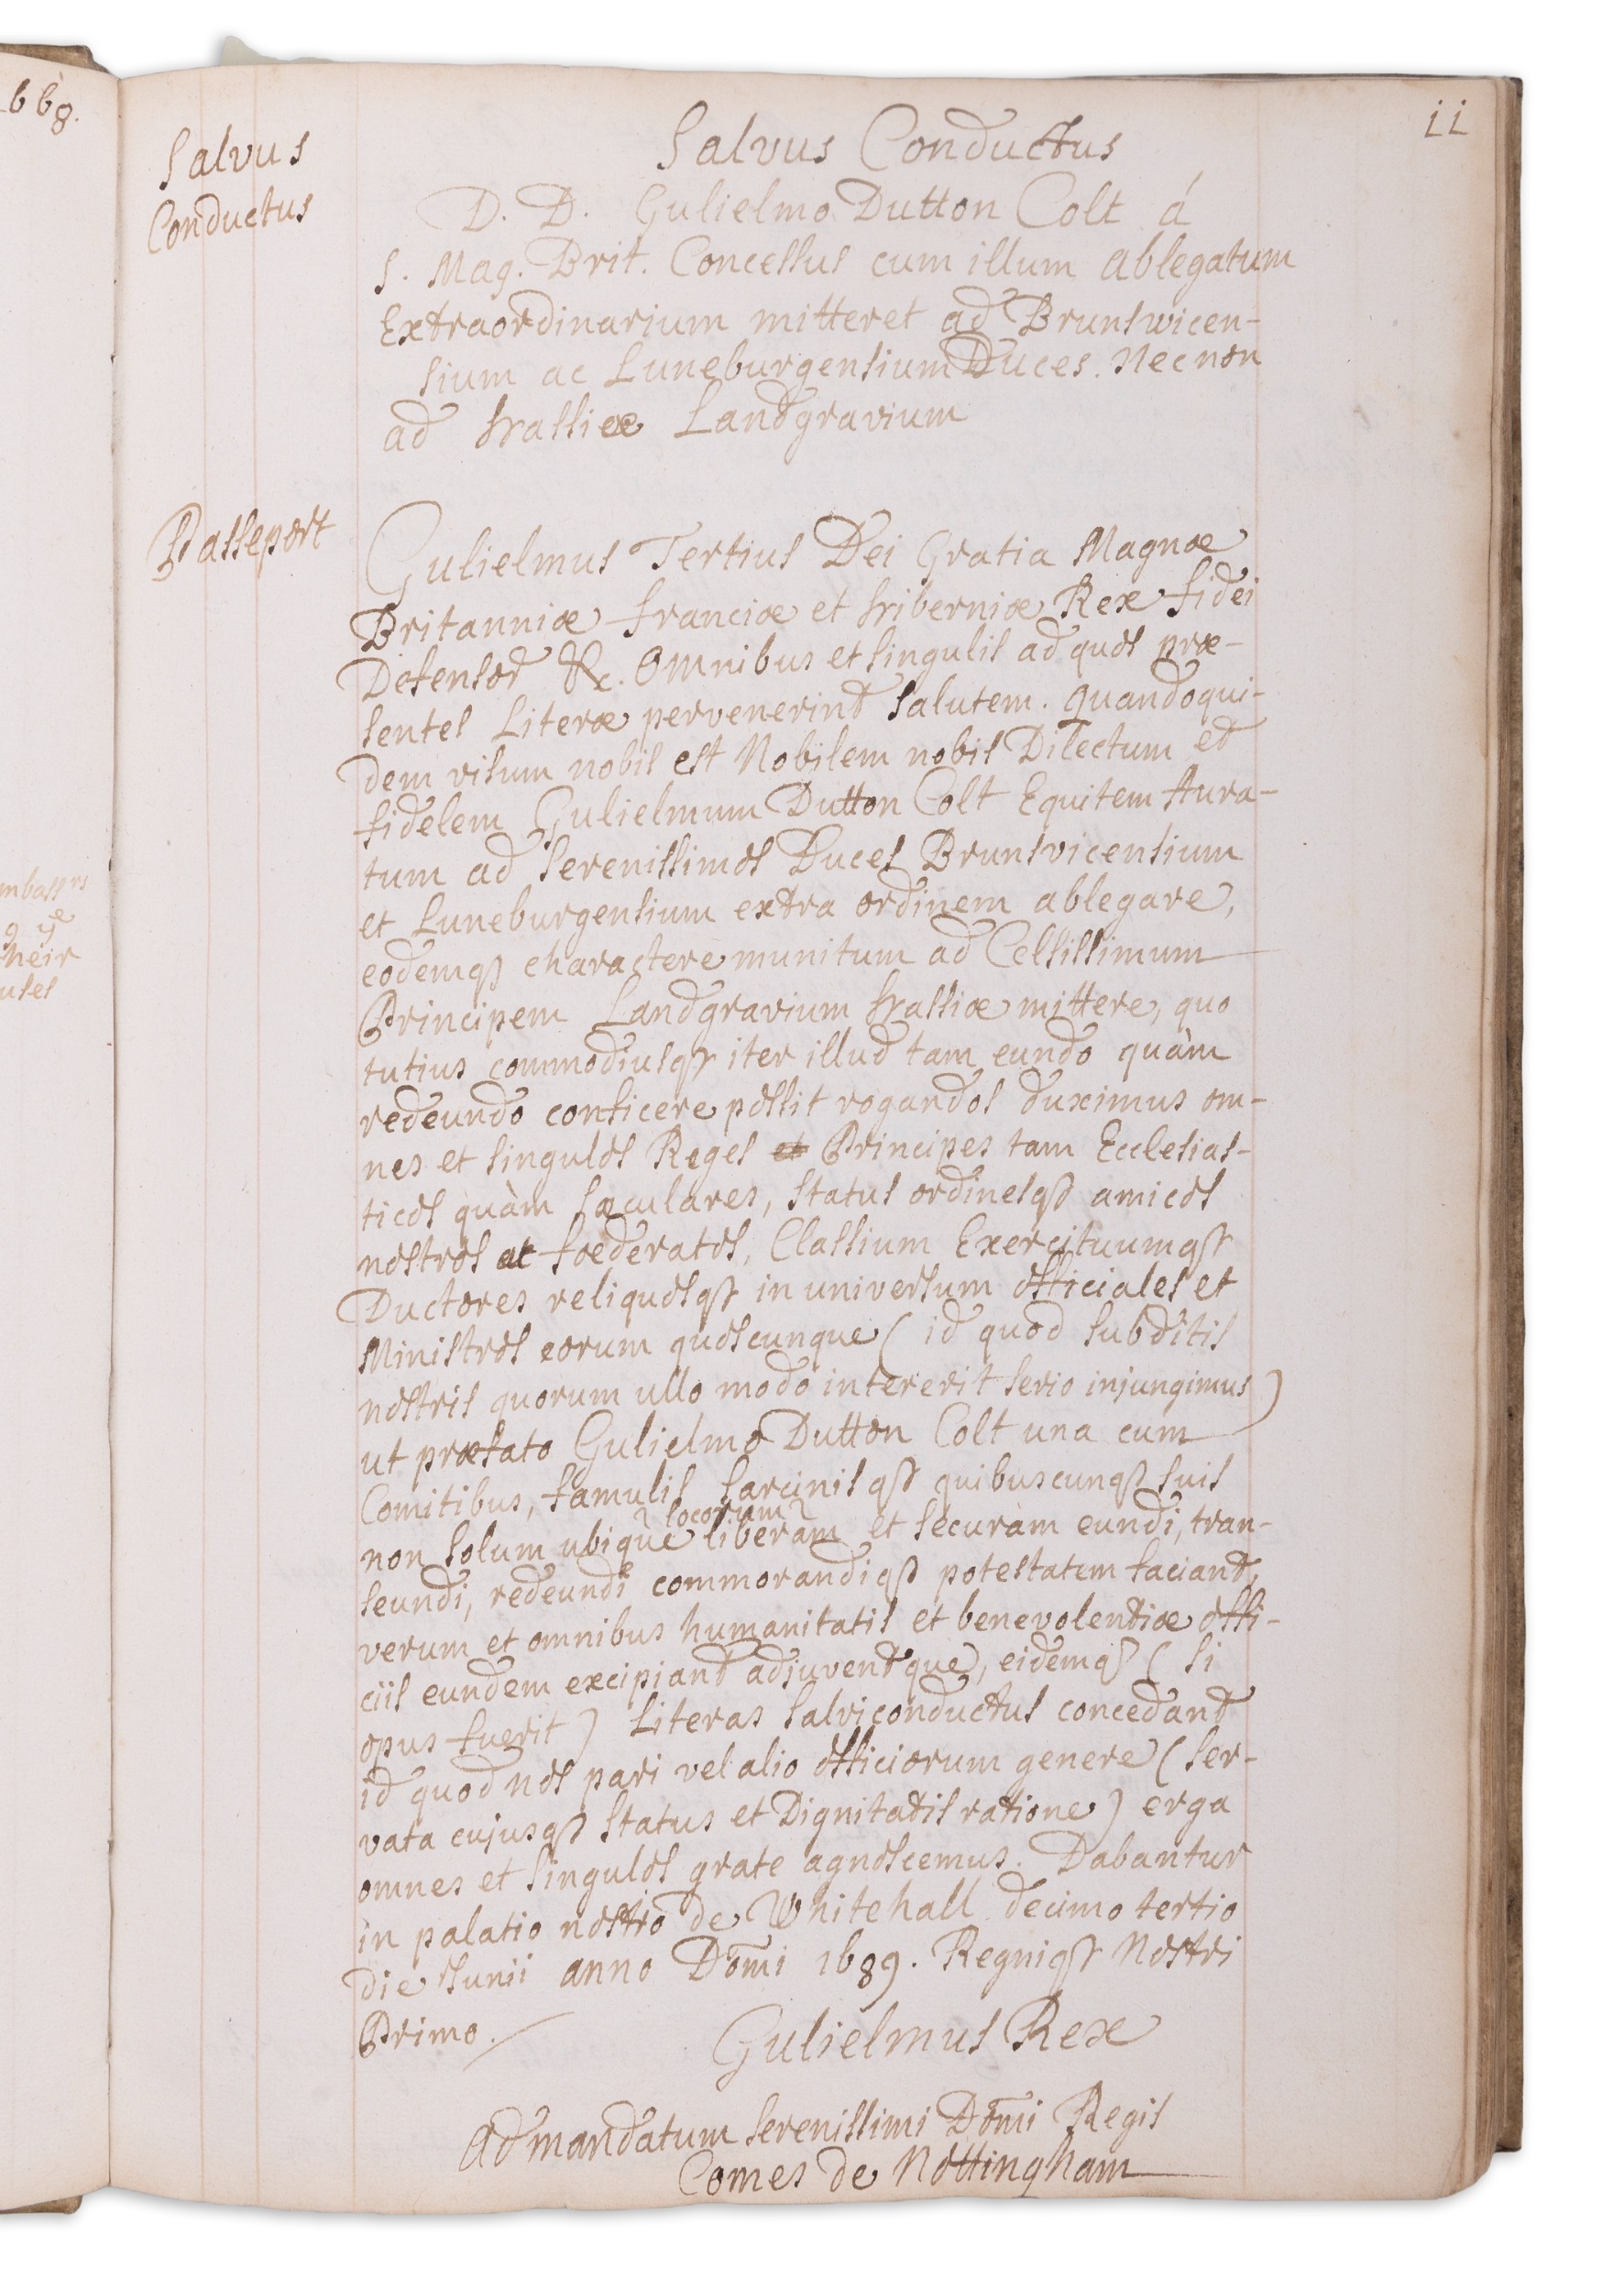 668.
11
Salvus
Conductus
Salvus Conductus
D. D. Gulielmo Dutton Colt á
S. Mag. Brit. Concessus cum illum ablegatum
Extraordinarium mitteret ad Brunswicen-
sium ac Luneburgensium Duces. Necnon
ad Hassiæ Landgravium
Passeport
Gulielmus Tertius Dei Gratia Magnæ
Britanniæ Franciæ et Hiberniæ Rex fidei
Defensor &c. Omnibus et singulis ad quos præ-
sentes Literæ pervenerint Salutem. Quandoqui-
dem visum nobis est Nobilem nobis Dilectum et
fidelem Gulielmum Dutton Colt Equitem Aura-
tum ad Serenissimos Duces Brunsvicensium
et Luneburgensium extra ordinem ablegare,
eodemqꝫ charactere munitum ad Celsissimum
Principem Landgravium Hassiæ mittere, quo
tutius commodiusqꝫ iter illud tam eundo quàm
redeundo conficere possit rogandos duximus om-
nes et singulos Reges et Principes tam Ecclesias-
ticos quàm sæculares, status ordinesqꝫ amicos
nostros ac fœderatos, Classium Exercituumqꝫ
Ductores reliquosqꝫ in universum officiales et
Ministros eorum quoscunque (id quod subditis
nostris quorum ullo modo intererit serio injungimus)
ut præfato Gulielmo Dutton Colt una cum
Comitibus, famulis sarcinisqꝫ quibuscunqꝫ suis
locorum
non solum ubique liberam et securam eundi, tran-
seundi, redeundi commorandiqꝫ potestatem faciant,
verum et omnibus humanitatis et benevolentiæ offi-
ciis eundem excipiant adjuventque, eidemqꝫ (si
opus fuerit) Literas salviconductus concedant
id quod nos pari vel alio officiorum genere (ser-
vata cujusqꝫ status et Dignitatis ratione) erga
omnes et singulos grate agnoscemus. Dabantur
in palatio nostro de Whitehall decimo tertio
die Junii anno Dom̄i 1689. Regniqꝫ Nostri
Primo.
Gulielmus Rex
Ad mandatum serenissimi Dom̄i Regis
Comes de Nottingham
mbassrs
g yᵉ
heir
uses